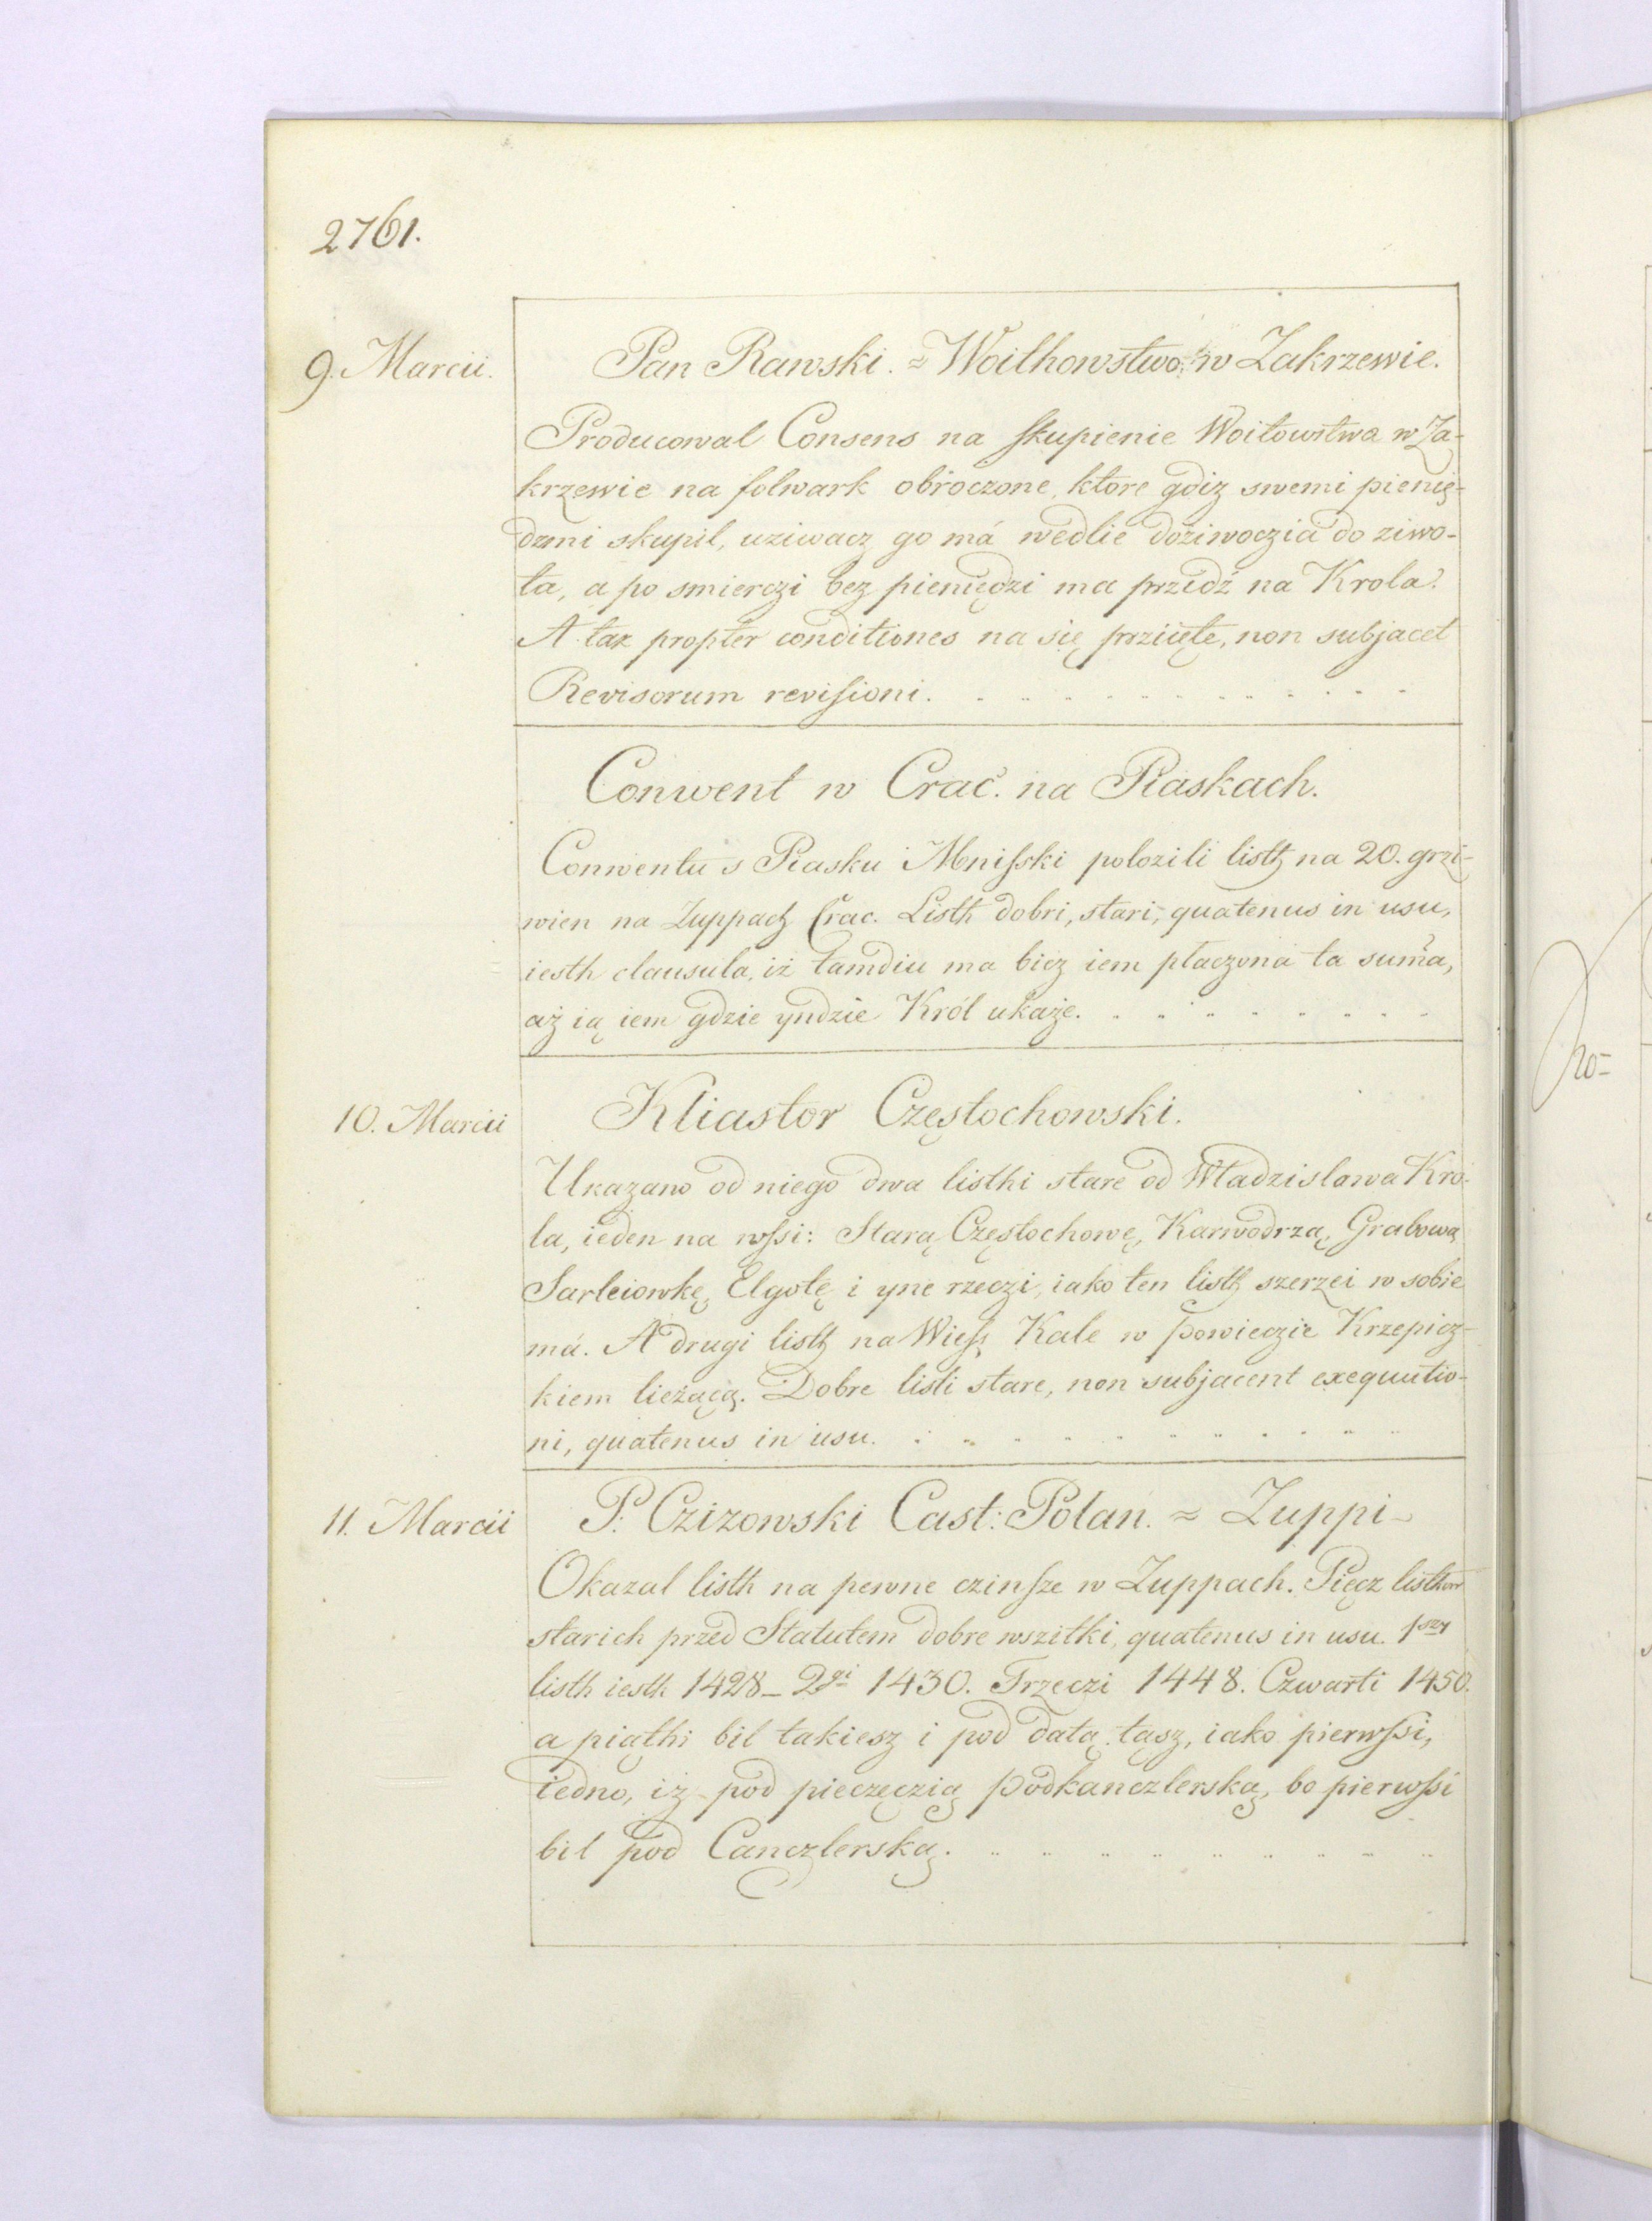 2761.
9. Marcii.
Pan Rawski. ≈ Woithowstwo w Zakrzewie.
Producowal Consens na skupienie Woitowstwa w Za-
krzewie na folwark obroczone, ktore gdiz swemi pienię-
dzmi skupil, uziwacz go má wedlie doziwoczia do ziwo-
ta, a po smierczi bez pieniędzi ma przidź na Krola.
A tak propter conditiones na się prziięte, non subjacet
Revisorum revisioni.
Conwent w Crac. na Piaskach.
Conwentu s Piasku Mnisski polozili listh na 20. grzi-
wien na Zuppach Crac. Listh dobri, stari, quatenus in usu,
iesth clausula, iż tamdiu ma bicz iem płaczona ta suma,
aż ią iem gdzie yndzie Król ukaże.
10. Marcii
Kliastor Częstochowski.
Ukazano od niego dwa listhi stare od Władzislawa Kro-
la, ieden na wssi: Starą Częstochowę, Karwodrzą, Grabową
Sarleiowkę, Elgotę i yne rzeczi, iako ten listh szerzei w sobie
má. A drugi listh na Wiess Kale w powieczie Krzepicz-
kiem lieżącą. Dobre listi stare, non subjacent exequutio-
ni, quatenus in usu.
11. Marcii
P. Czizowski Cast: Polan. ≈ Zuppi-
Okazal listh na pewne czinsze w Zuppach. Pięcz listhow
starich przed Statutem dobre wszitki, quatenus in usu. 1szy
listh iesth 1428_ 2gi 1430. Trzeczi 1448. Czwarti 1450.
a piąthi bil takiesz i pod datą tąsz, iako pierwssi,
iedno, iż pod pieczęczią podkanczlerską, bo pierwssi
bil pod Canczlerską.
ro-